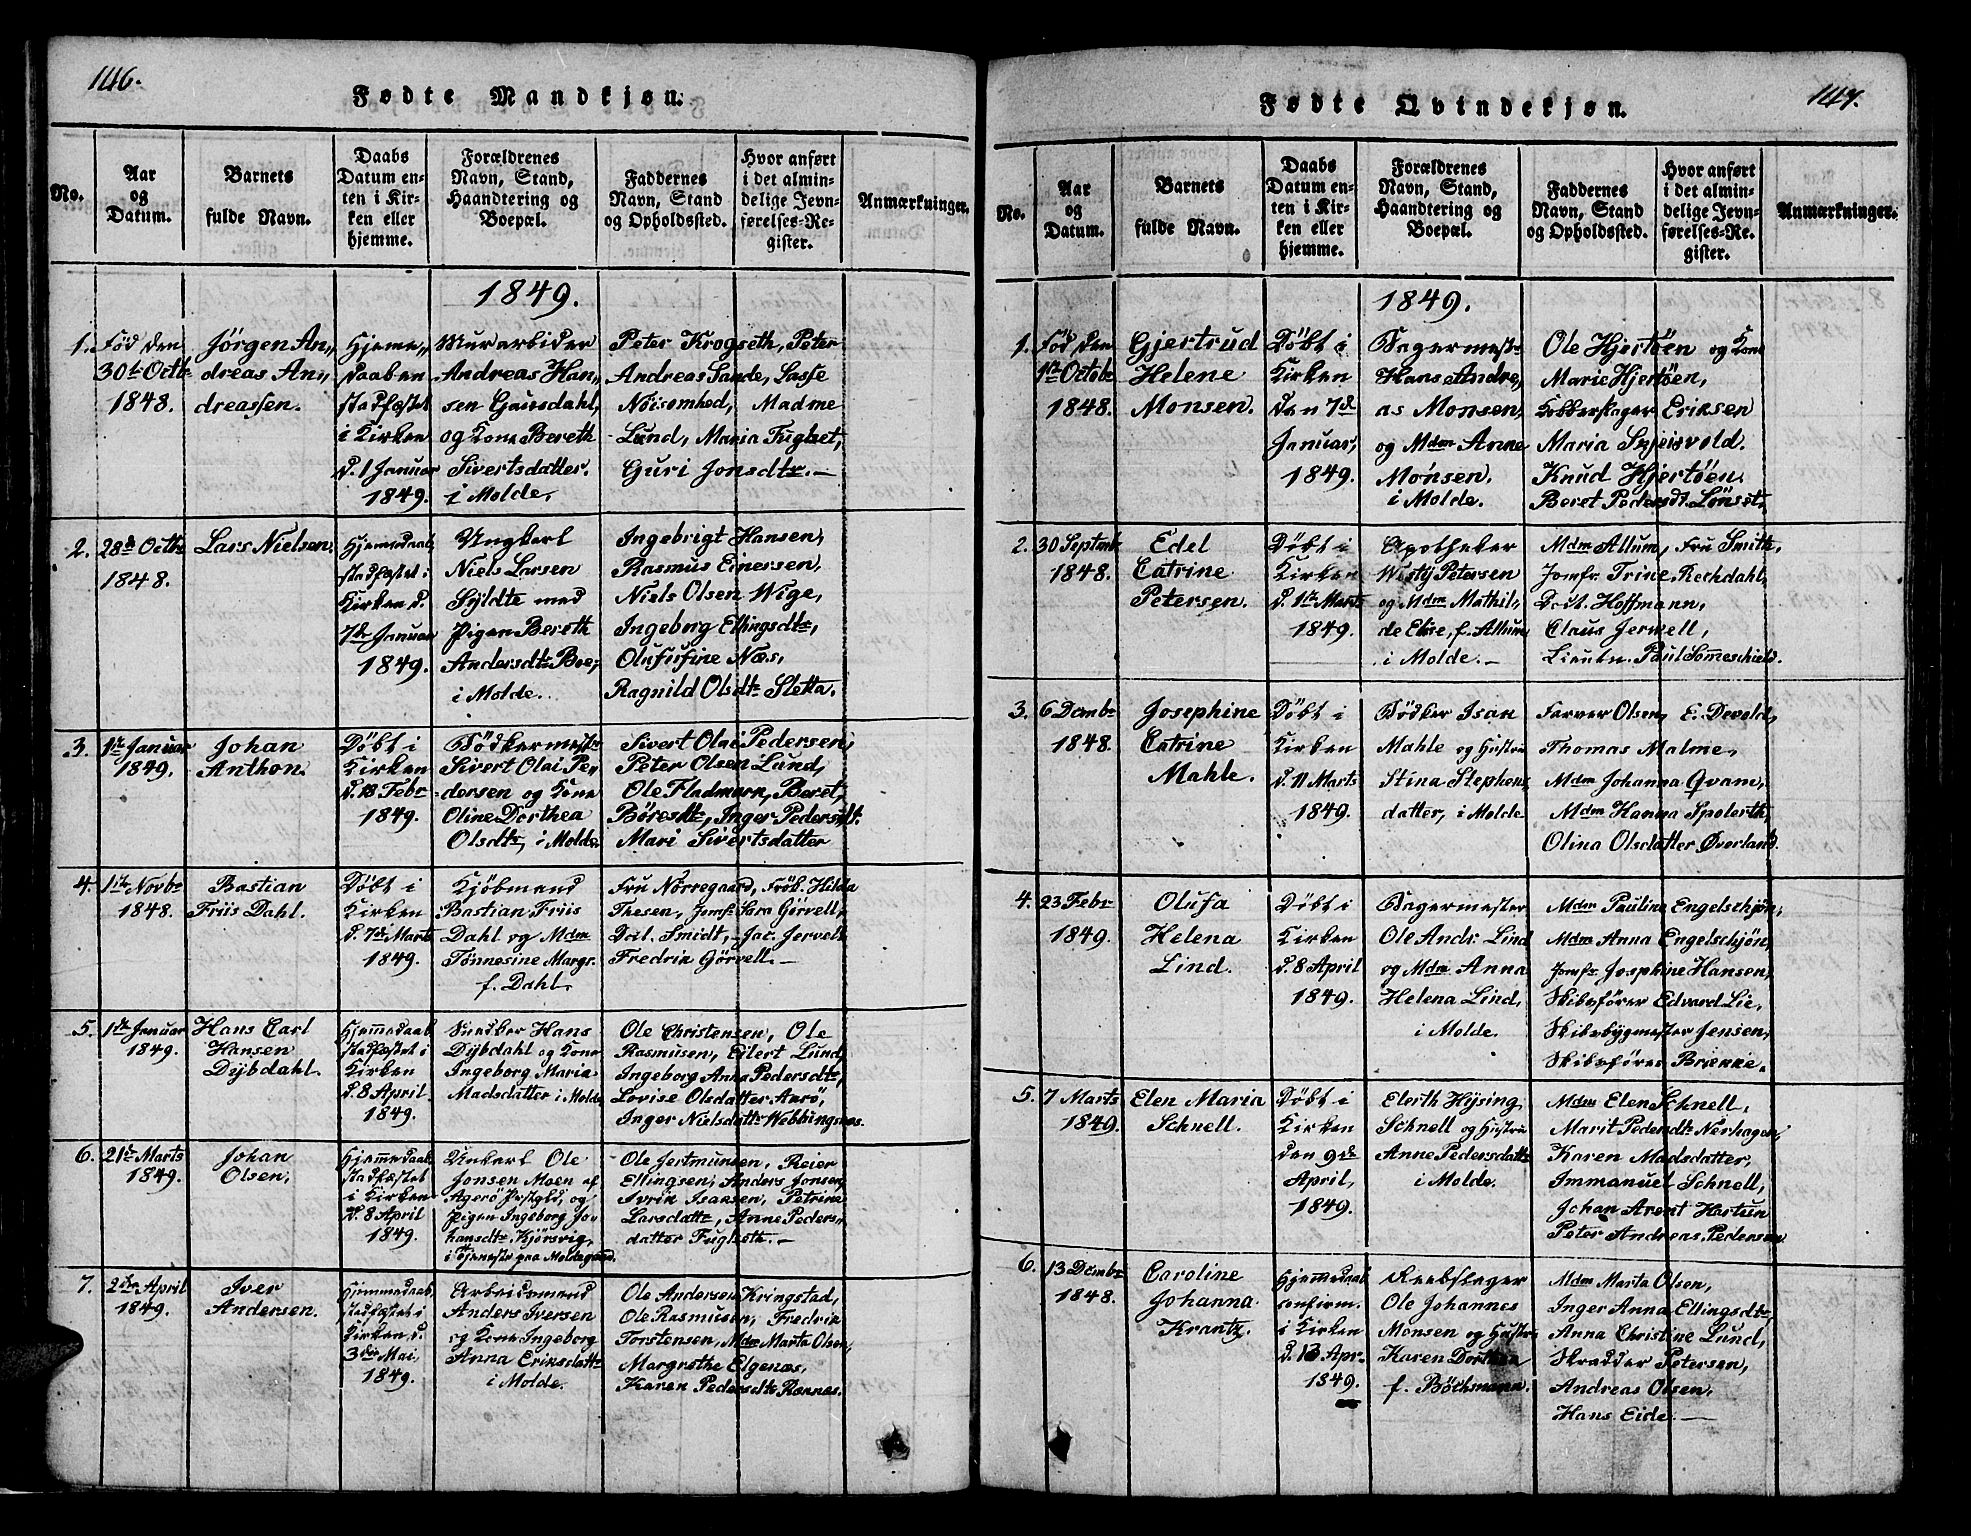 146.
Fødte Mandkjøn.
No.
Aar
og
Datum.
Barnets
fulde Navn.
Daabs
Datum en-
ten i Kir-
ken eller
hjemme.
Forældrenes
Navn, Stand,
Haandtering og
Boepæl.
Faddernes
Navn, Stand
og Opholdssted.
Hvor anført
i det almin-
delige Jevn-
førelses-Re-
gister.
Anmærkninger.
1849.
1.
Fød den
30te Octbr
1848.
Jörgen An„
dreas An„
dreassen.
Hjeme„
daaben
stadfæstet
i Kirken
d. 1 Januar
1849.
Murarbeider
Andreas Han„
sen Gausdahl,
og Kone Bereth
Sivertsdatter.
i Molde.
Peter Krogseth, Peter
Andreas Sande, Lasse
Nöisomhed, Madme
Lund, Maria Fugset,
Guri Jonsdtr. —
2.
28de Octbr
1848.
Lars Nielsen.
Hjemmedaab
stadfæstet i
Kirken d.
7de Januar
1849.
Ungkarl
Niels Larsen
Syldte med
Pigen Bereth
Andersdtr Boe,
i Molde.
Ingebrigt Hansen,
Rasmus Einersen,
Niels Olsen Wige,
Ingeborg Ellingsdtr,
Olufufine Næs,
Ragnild Olsdtr Sletta.
3.
1te Januar
1849.
Johan
Anthon.
Döbt i
Kirken
d. 18 Febr
1849.
Bödkermestr
Sivert Olai Pe„
dersen og Kone
Oline Dorthea
Olsdtr, i Molde.
Sivert Olai Pedersen,
Peter Olsen Lund,
Ole Fladmark, Beret,
Böresdtr, Inger Pedersdt.
Mari Sivertsdatter
4.
1te Novbr
1848.
Bastian
Friis Dahl.
Döbt i
Kirken
d. 7de Marts
1849.
Kjöbmand
Bastian Friis
Dahl og Mdm
Tönnesine Margr.
f. Dahl.
Fru Nörregaard, Frök. Hilda
Thesen, Jomfr Sara Görvell,
Doct. Smidt, Jac. Jervell
Fredrik Görvell. —
5.
1te Januar
1849.
Hans Carl
Hansen
Dybdahl.
Hjemmedaab
stadfæstet i
Kirken
d. 8 April
1849.
Snedker Hans
Dybdahl og Kone
Ingeborg Maria
Madsdatter i Molde
Ole Christensen, Ole
Rasmusen, Eilert Lund,
Ingeborg Anna Pedersdtr,
Lovise Olsdatter Aarö,
Inger Nielsdattr Webbingsnæs.
6.
21de Marts
1849.
Johan
Olsen,
Hjemmedaab
stadfæstet
i Kirken
d. 8 April
1849.
Unkarl Ole
Jonsen Moen af
Agerö Præstgld og
Pigen Ingeborg Jo„
hansdtr. Kjörsvig,
i Tjeneste paa Moldegaard.
Ole Jertmunsen, Reier
Ellingsen, Anders Jonsen,
Ivrik Isaksen, Petrine
Larsdattr, Anne Peders„
datter Fugleth. —
7.
2den April
1849.
Iver
Andersen.
Hjemmedaab,
stadfæstet i
Kirken, d.
3die Mai,
1849.
Arbeidsmand
Anders Iversen
og Kone Ingeborg
Anna Eriksdattr
i Molde.
Ole Andersen Kringstad,
Ole Rasmusen, Fredrik
Torstensen, Mdm Marta Olsen,
Margrethe Elgenæs,
Karen Pedersdtr Rænnæs.
147.
Fødte Qvindekjøn.
No.
Aar
og
Datum.
Barnets
fulde Navn.
Daabs
Datum en-
ten i Kir-
ken eller
hjemme.
Forældrenes
Navn, Stand,
Haandtering og
Boepæl.
Faddernes
Navn, Stand
og Opholdssted.
Hvor anført
i det almin-
delige Jevn-
førelses-Re-
gister.
Anmærkninger.
1849.
1.
Fød den
1te Octobr
1848.
Gjertrud
Helene
Monsen.
Döbt i
Kirken
den 7de
Januar,
1849.
Bagermestr
Hans Andre„
as Monsen,
og Mdm Anne
Monsen.
i Molde.
Ole Hjertöen og Kone
Marie Hjertöen,
Kobberslager Eriksen
Maria Snjeisvold.
Knud Hjertöen.
Beret Pedersdt. Lönset.
2.
30 Septmbr
1848.
Edel
Catrine
Petersen.
Döbt i
Kirken
d. 1te Marts
1849.
Apotheker
Westy Petersen
og Mdm Mathil„
de Elise, f. Allum
i Molde. —
Mdm Allum, Fru Smith,
Jomfr. Trine Rechdahl,
Doct. Hoffmann,
Claus Jerwell,
Lieutn. Paul Someschield.
3.
6 Decmbr
1848.
Josephine
Catrine
Mahle.
Döbt i
Kirken
d. 11 Marts
1849.
Bödker Isak
Mahle og Hustru
Stina Stephens
datter, i Molde
Farver Olsen, E. Devold,
Thomas Malme,
Mdm Johanna Qvam,
Mdm Hanna Spolerth,
Olina Olsdatter Överland.
4.
23 Febr
1849.
Olufa
Helena
Lind.
Döbt i
Kirken
d. 8 April
1849.
Bagermester
Ole Andr. Lind
og Mdm Anna
Helena Lind,
i Molde.
Mdm Pauline Engelschjön,
Mdm Anna Engelschjön,
Jomfr Josephine Hansen,
Skibsfører Edvard Lie,
Skibsbygmester Jensen,
Skibsförer Brække.
5.
7 Marts
1849.
Elen Maria
Schnell.
Döbt i
Kirken
den 9de
April,
1849.
Elerth Hysing
Schnell og Hustru
Anne Pedersdattr
i Molde.
Mdm Elen Schnell,
Marit Pedersdtr Nerhagen,
Karen Madsdatter,
Immanuel Schnell,
Johan Arent Hartun
Peter Andreas Pedersen
6.
13 Decmbr
1848.
Caroline
Johanna
Krantz.
Hjemmedaab
confirm.
i Kirken
d. 13 Apr.
1849.
Reebslager
Ole Johannes
Monsen og Hustr
Karen Dorthea
f. Böckmann.
Mdm Marta Olsen,
Inger Anna Ellingsdtr,
Anna Christine Lund,
Skrædder Petersen,
Andreas Olsen,
Hans Eide. —